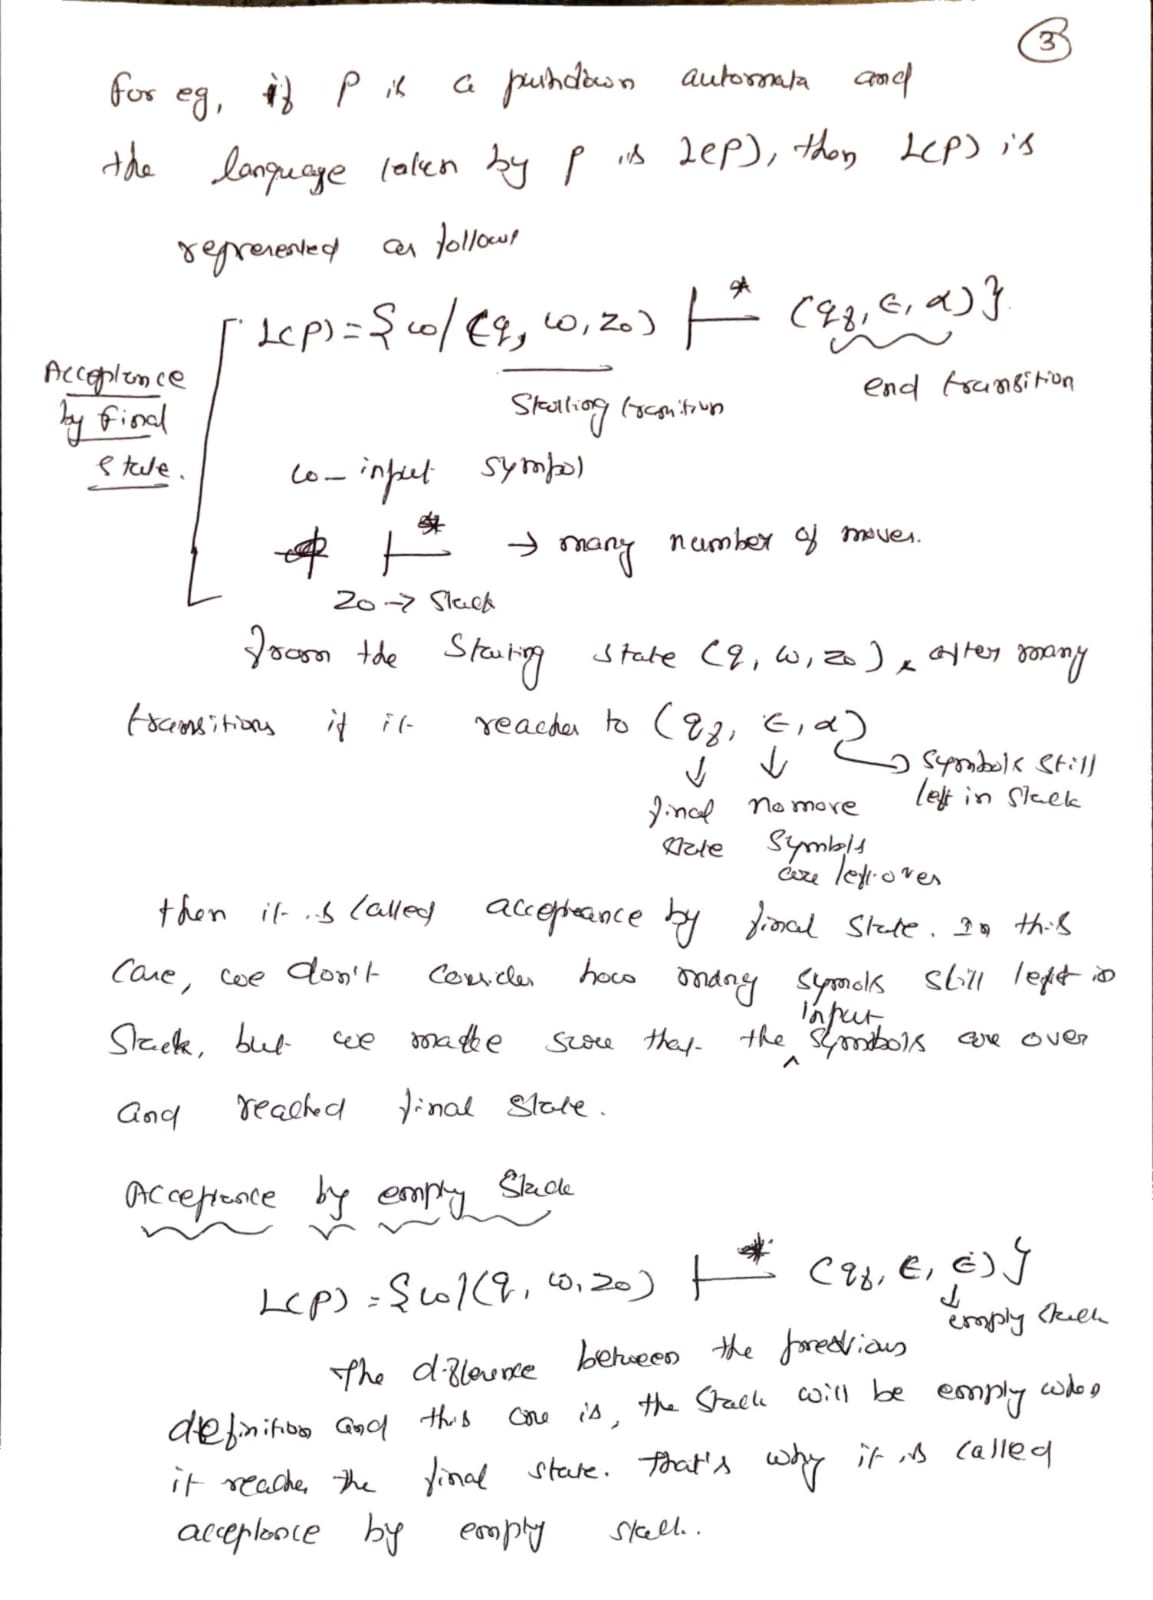 3
for eg, if P is a pushdown automata and
the language taken by P is L(P), then L(P) is
represented as follows
L(P) = { w / (q, w, z0) ⊢* (qf, ∈, α) }
Acceptance
by final
state.
Starting transition
end transition
w - input symbol
⊢* → many number of moves.
z0 → Stack
from the Starting state (q, w, z0), after many
transitions if it reaches to (qf, ∈, α)
↓ ↓ → symbols still
left in stack
final no more
state symbols
are left over
then it is called acceptance by final state. In this
case, we don't consider how many symols still left in
Stack, but we make sure that the input symbols are over
and reached final state.
Acceptance by empty Stack
L(P) = { w / (q, w, z0) ⊢* (qf, ∈, ∈) }
↓
empty stack
The difference between the previous
definition and this one is, the stack will be empty when
it reaches the final state. that's why it is called
acceptance by empty stack.